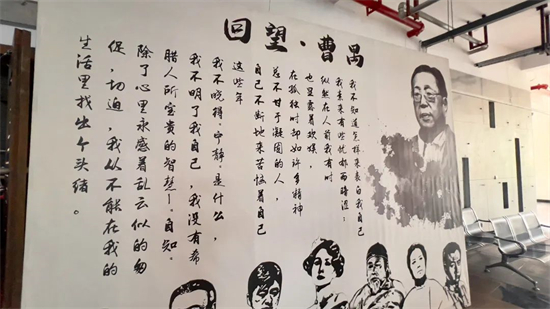 回望·曹禺
我不知道怎样来表白我自己
我素来有些忧郁而暗涩；
纵然在人前我有时
也显露着欢娱，
在孤独时却如许多精神
总不甘于凝固的人，
自己不断地来苦恼着自己
这些年
我不晓得“宁静”是什么，
我不明了我自己，我没有希
腊人所宝贵的智慧——自知。
除了心里永感着乱云似的匆
促，切迫，我从不能在我的
生活里找出个头绪。